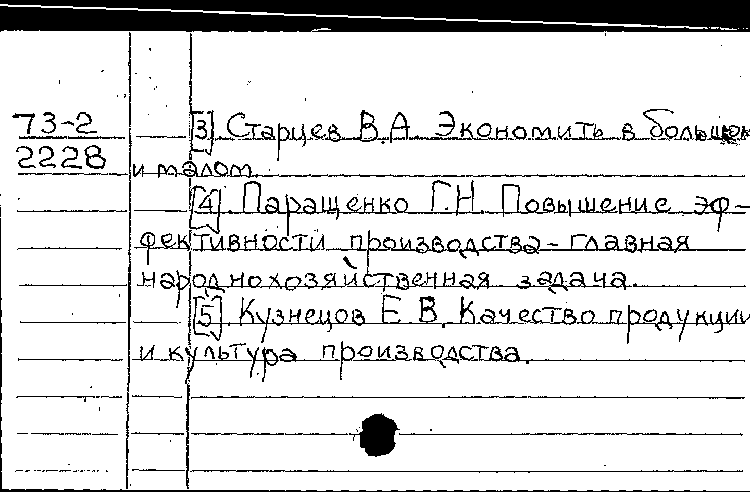 73-2 [3]. Старцев В.А. Экономить в большом
2228 и малом.
[4]. Паращенко Г.Н. Повышение эф-
фективности производства - главная
народнохозяйственная задача.
[5]. Кузнецов Е.В. Качество продукции
и культура производства.